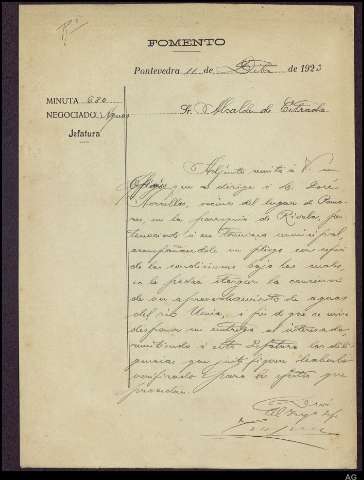 FOMENTO
Pontevedra 11 de Dibre de 1923
MINUTA 630
NEGOCIADO Aguas
Jefatura
Sr. Alcalde de Estrada
Adjunto remito á V. un
que se dirige á D. José
vecino del lugar de
en la parroquia de Riobó, per-
teneciendo á su término municipal,
acompañándole un pliego
de las condiciones bajo las cuales
se le puede otorgar la concesión
de un aprovechamiento de aguas
del río Umia, á fin de que se sirva
disponer su entrega al interesado
remitiendo á esta Jefatura las dili-
gencias que justifiquen haberlo
verificado para los efectos que
procedan.
El Ingº Jefe
AG